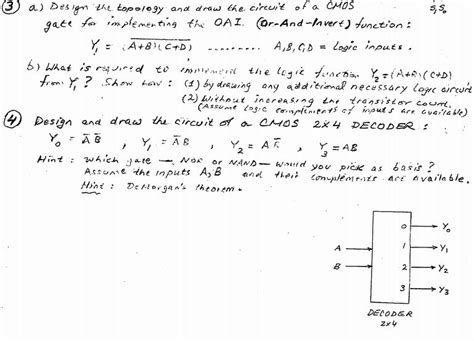 (3) a.) Design the topology and draw the circuit of a CMOS
S₁S₀
gate for implementing the OAI (Or-And-Invert) function :
Y₁ = \overline{(A+B)(C+D)} ......... A,B,C,D = logic inputs.
b.) What is required to implement the logic function Y₂=(A+B)(C+D)
from Y₁ ? Show how : (1) by drawing any additional necessary logic circuit
(2) Without increasing the transistor count.
(Assume logic complements of inputs are available)
(4) Design and draw the circuit of a CMOS 2X4 DECODER :
Y₀ = A̅ B̅ , Y₁ = A̅ B , Y₂ = A B̅ , Y₃ = AB
Hint : Which gate — NOR or NAND — would you pick as basis ?
Assume the inputs A, B and their complements are available.
Hint : DeMorgan's theorem.
0 Y₀
A 1 Y₁
B 2 Y₂
3 Y₃
DECODER
2x4